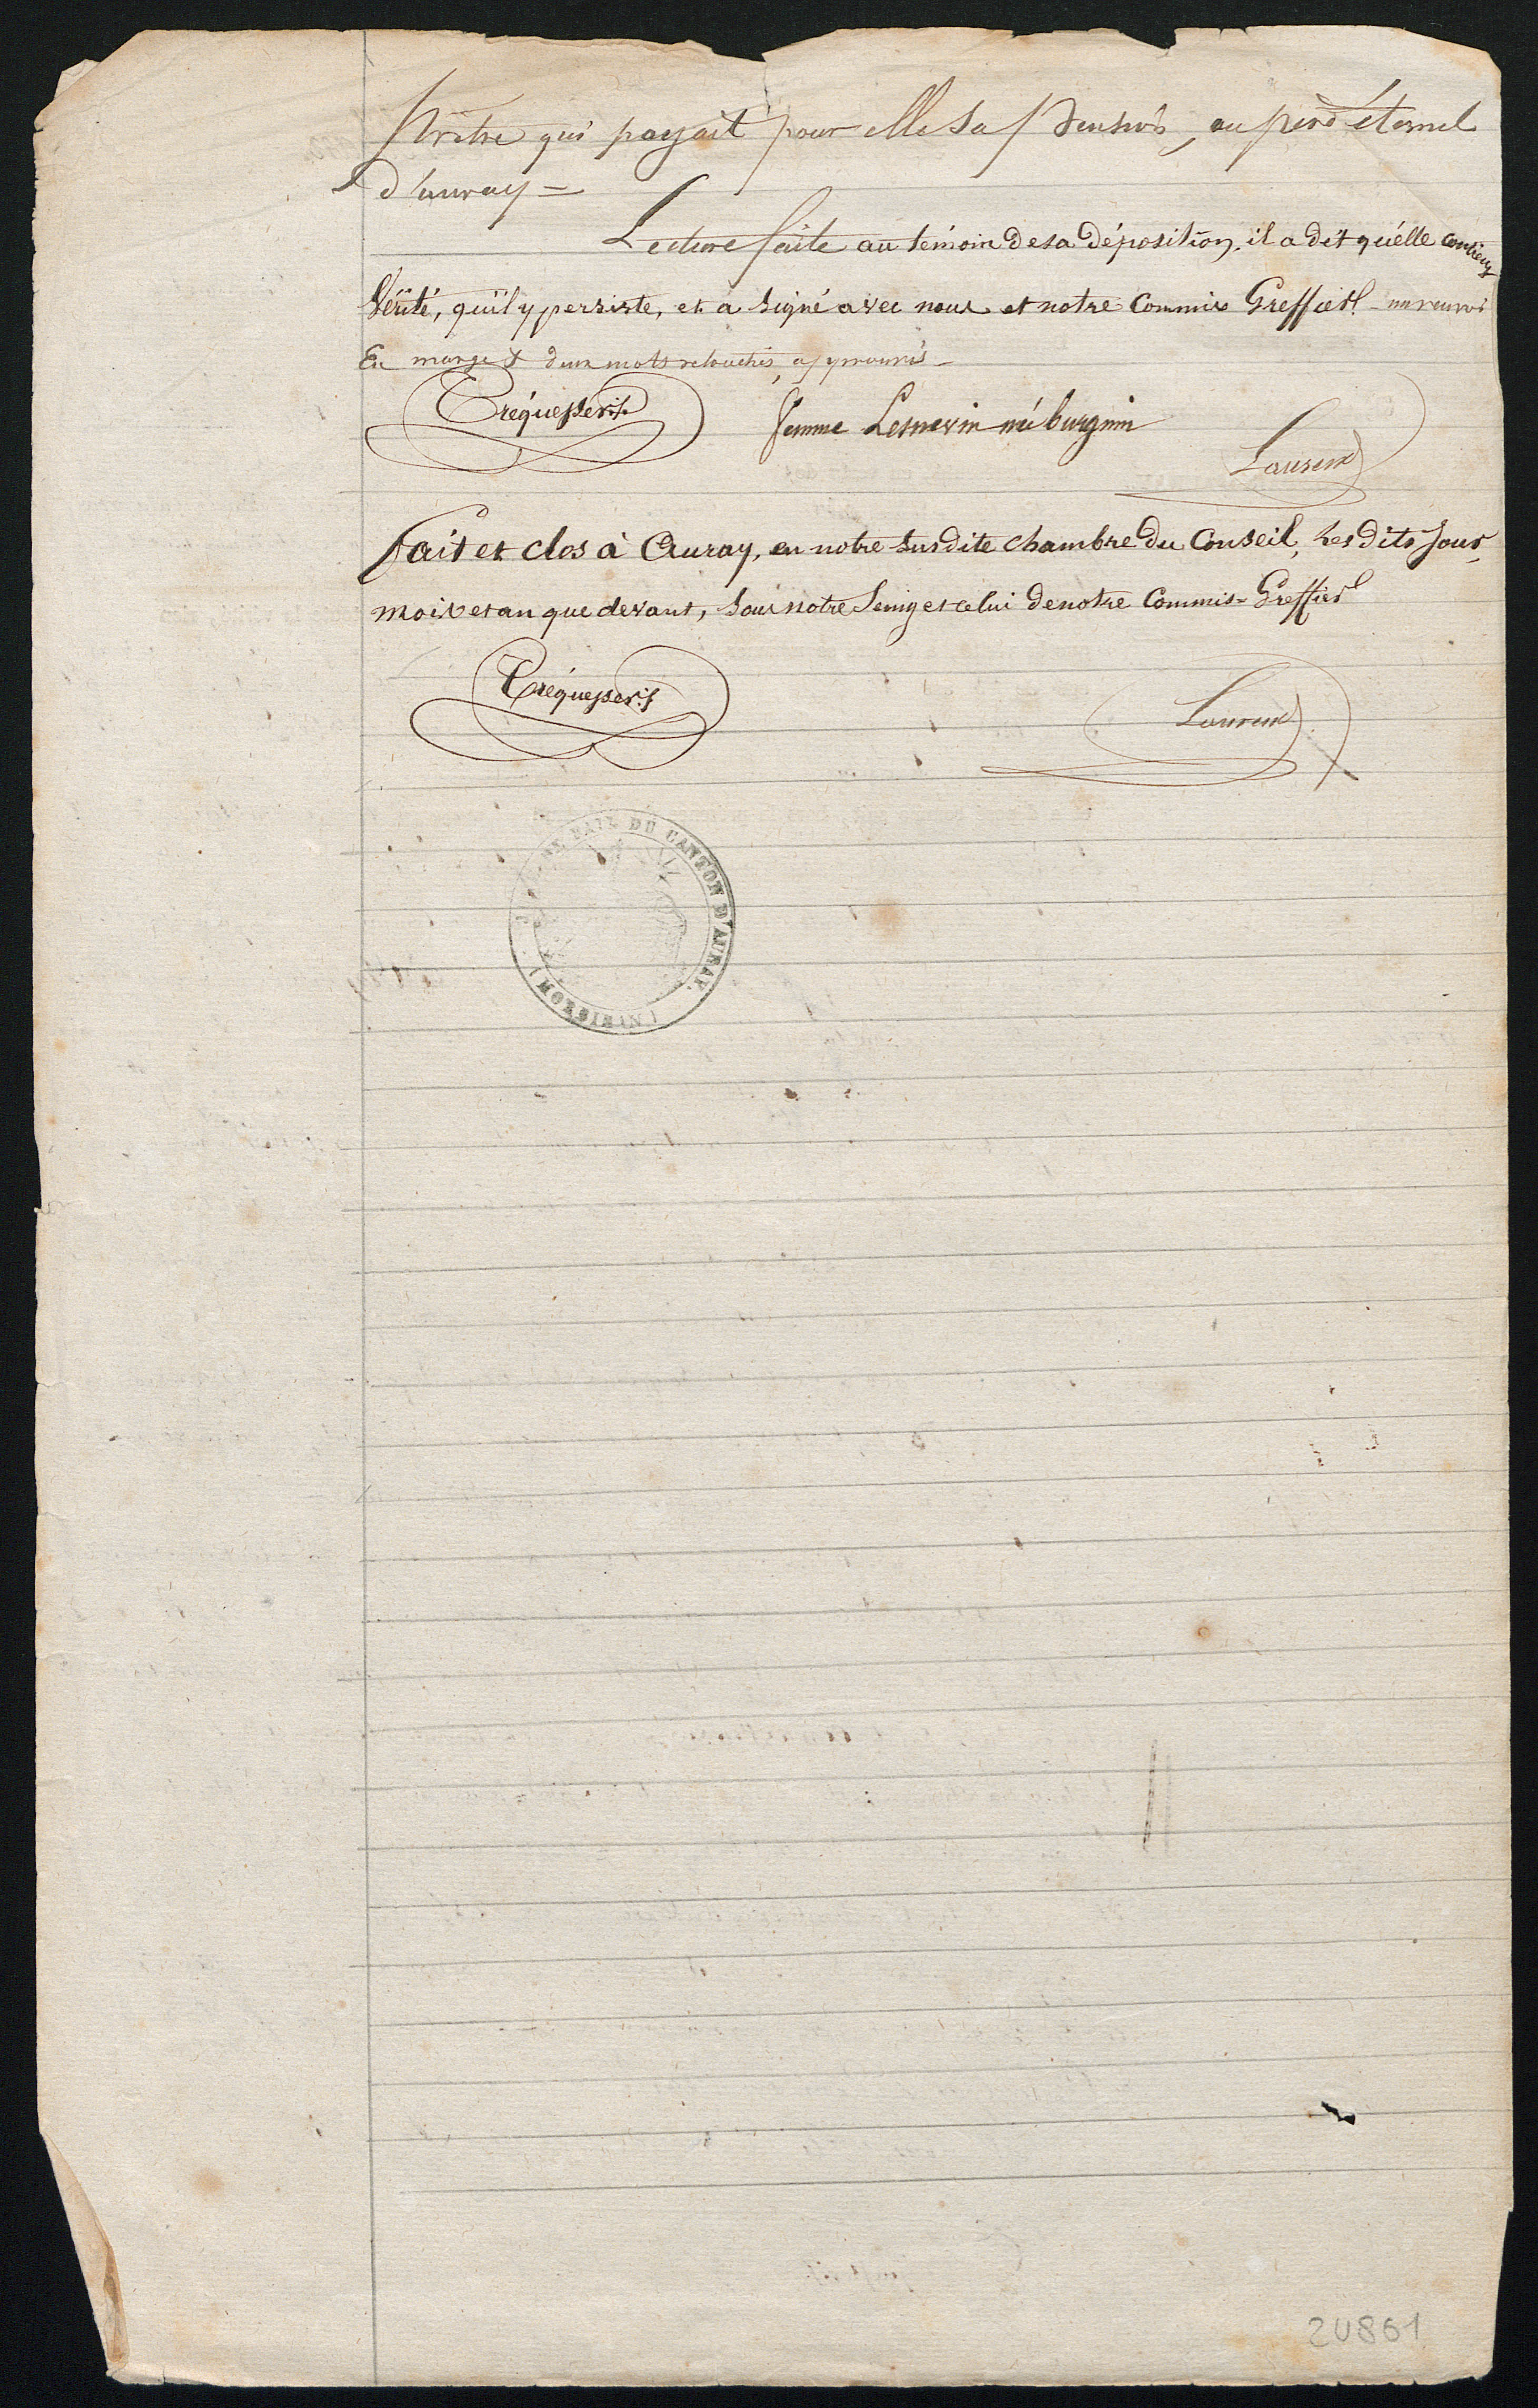 Prêtre qui payait pour elle sa pension, au père éternel
d'auray =
Lecture faite au témoin de sa déposition, il a dit qu'elle contient
Vérité, qu'il y persiste, et a signé avec nous et notre Commis Greffier. un renvoi
En marge & deux mots retouchés, approuvés -
femme Lesnevin né burgnin
Laurent
Fait et clos à Auray, en notre susdite chambre du Conseil, les dits Jour,
mois et an que devant, sous notre Seing et celui de notre Commis-Greffier
Laurent
DE PAIX DU CANTON D'AURAY.
(MORBIHAN)
2U861